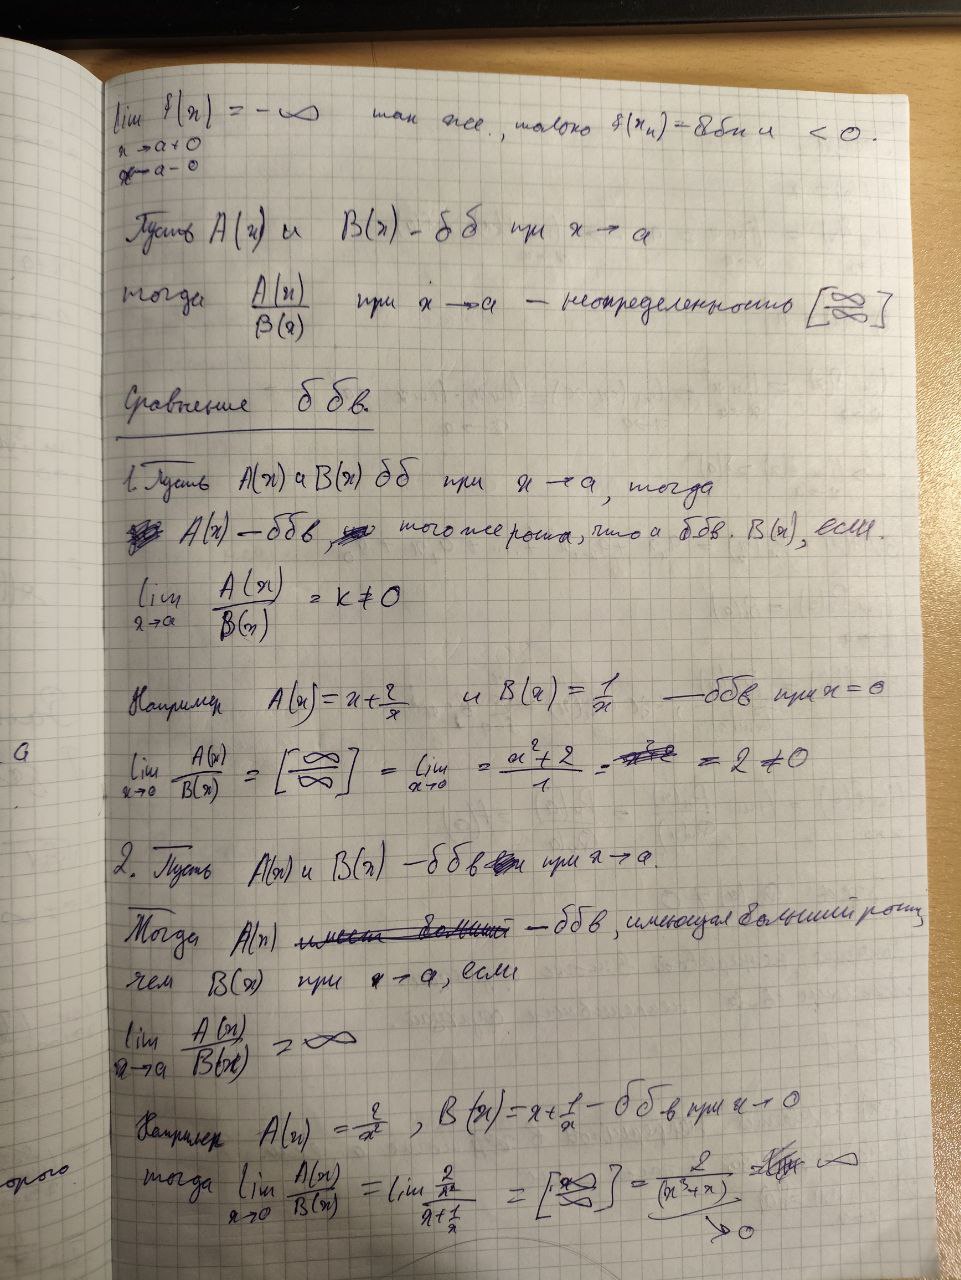 lim f(x) = -∞ так же, только f(xₙ) - ббп и < 0.
x→a+0
x→a-0
Пусть A(x) и B(x) - бб при x→a
тогда A(x)/B(x) при x→a - неопределенность [∞/∞]
Сравнение ббв.
1. Пусть A(x) и B(x) бб при x→a, тогда
A(x) - ббв, того же роста, что и ббв. B(x), если.
lim x→a A(x)/B(x) = k ≠ 0
Например A(x) = x + 2/x и B(x) = 1/x — ббв при x = 0
lim x→0 A(x)/B(x) = [∞/∞] = lim x→0 = (x²+2)/1 = = 2 ≠ 0
2. Пусть A(x) и B(x) - ббв при x→a.
Тогда A(x) - ббв, имеющая больший рост,
чем B(x) при x→a, если
lim x→a A(x)/B(x) = ∞
Например A(x) = 2/x², B(x) = x + 1/x - ббв при x→0
тогда lim x→0 A(x)/B(x) = lim (2/x²)/(x + 1/x) = [∞/∞] = 2/(x³+x) = ∞
↘0
a
орого